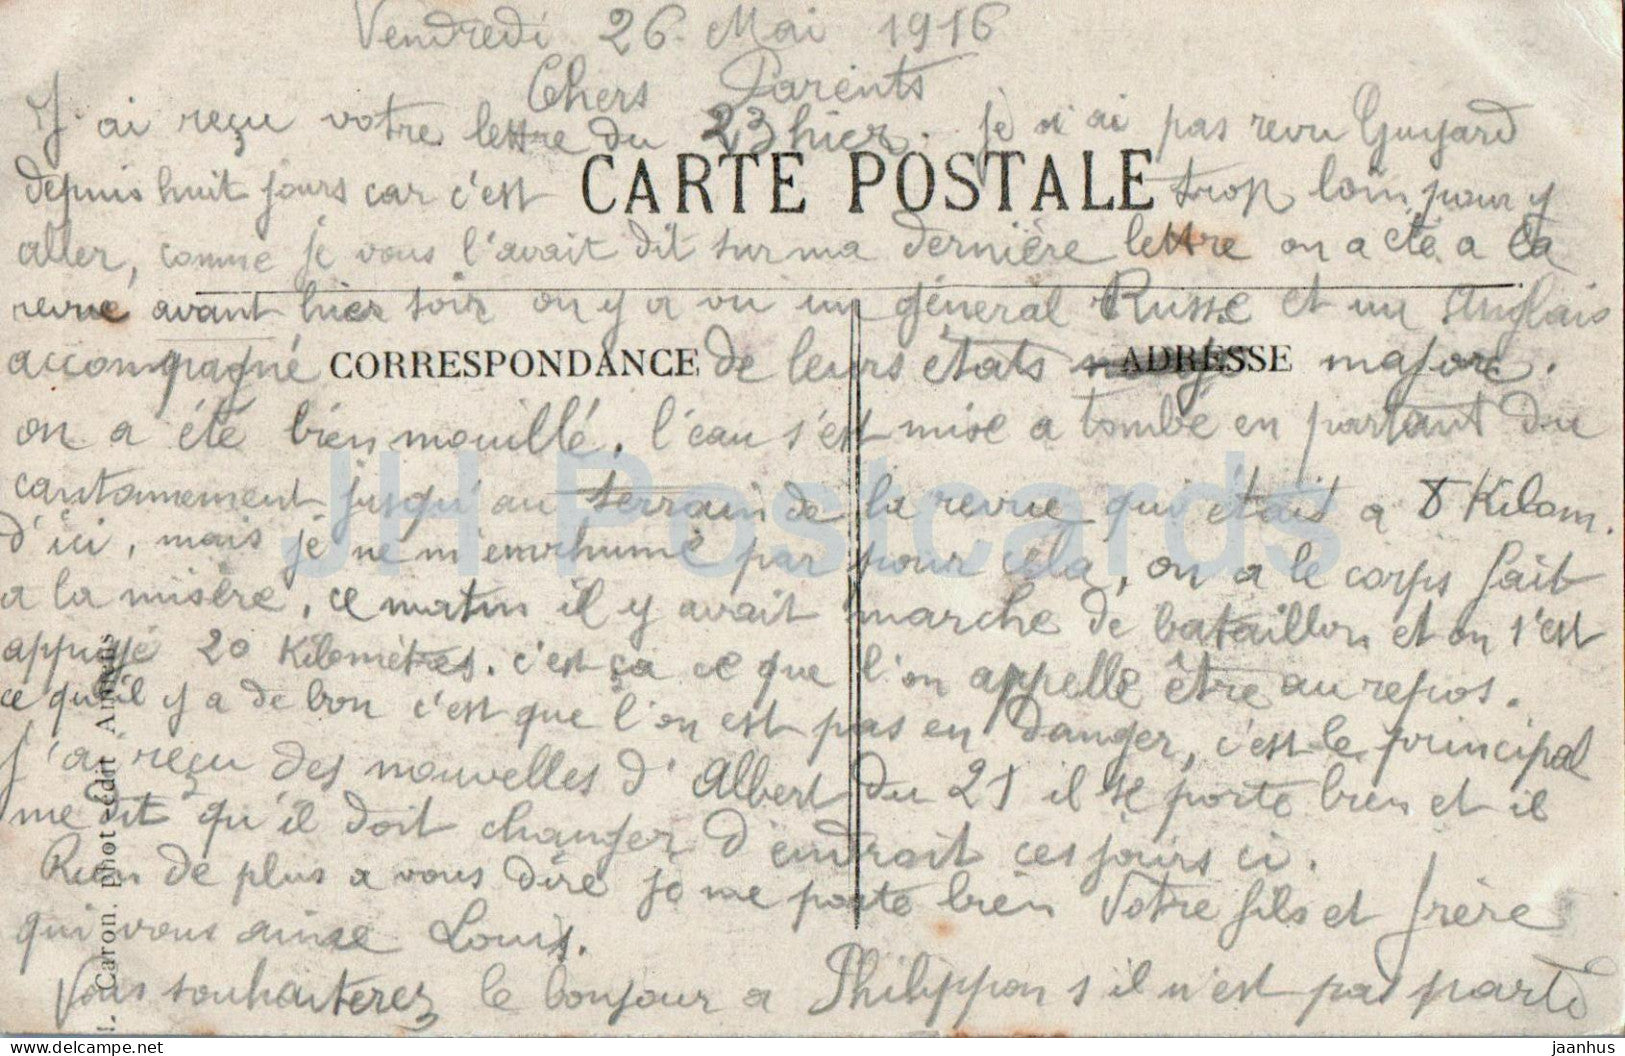 Vendredi 26 Mai 1916
Chers Parents
J'ai reçu votre lettre du 23 hier. je n'ai pas revu Guyard
CARTE POSTALE
depuis huit jours car c'est trop loin pour y
aller, comme je vous l'avait dit sur ma dernière lettre on a été a la
revue avant hier soir on y a vu un géneral Russe et un Anglais
CORRESPONDANCE
ADRESSE
accompagné de leurs états majore.
on a été bien mouillé. l'eau s'est mise a tombé en partant du
cantonnement jusqu'au terrain de la revue qui était a 8 Kilom.
d'ici, mais je ne m'enrhumé pas pour cela, on a le corps fait
a la misère. ce matin il y avait marche de bataillon et on s'est
appuyé 20 Kilomètres. c'est ça ce que l'on appelle être au repos.
ce qu'il y a de bon c'est que l'on est pas en danger, c'est le principal
J'ai reçu des nouvelles d'Albert du 21 il se porte bien et il
me dit qu'il doit changer d'endroit ces jours ci.
Rien de plus a vous dire je me porte bien Votre fils et frère
qui vous aime Louis.
Vous souhaiterez le bonjour a Philippon s'il n'est pas parti
L. Caron. phot-édit Amiens
JH Postcards
jaanhus
www.delcampe.net